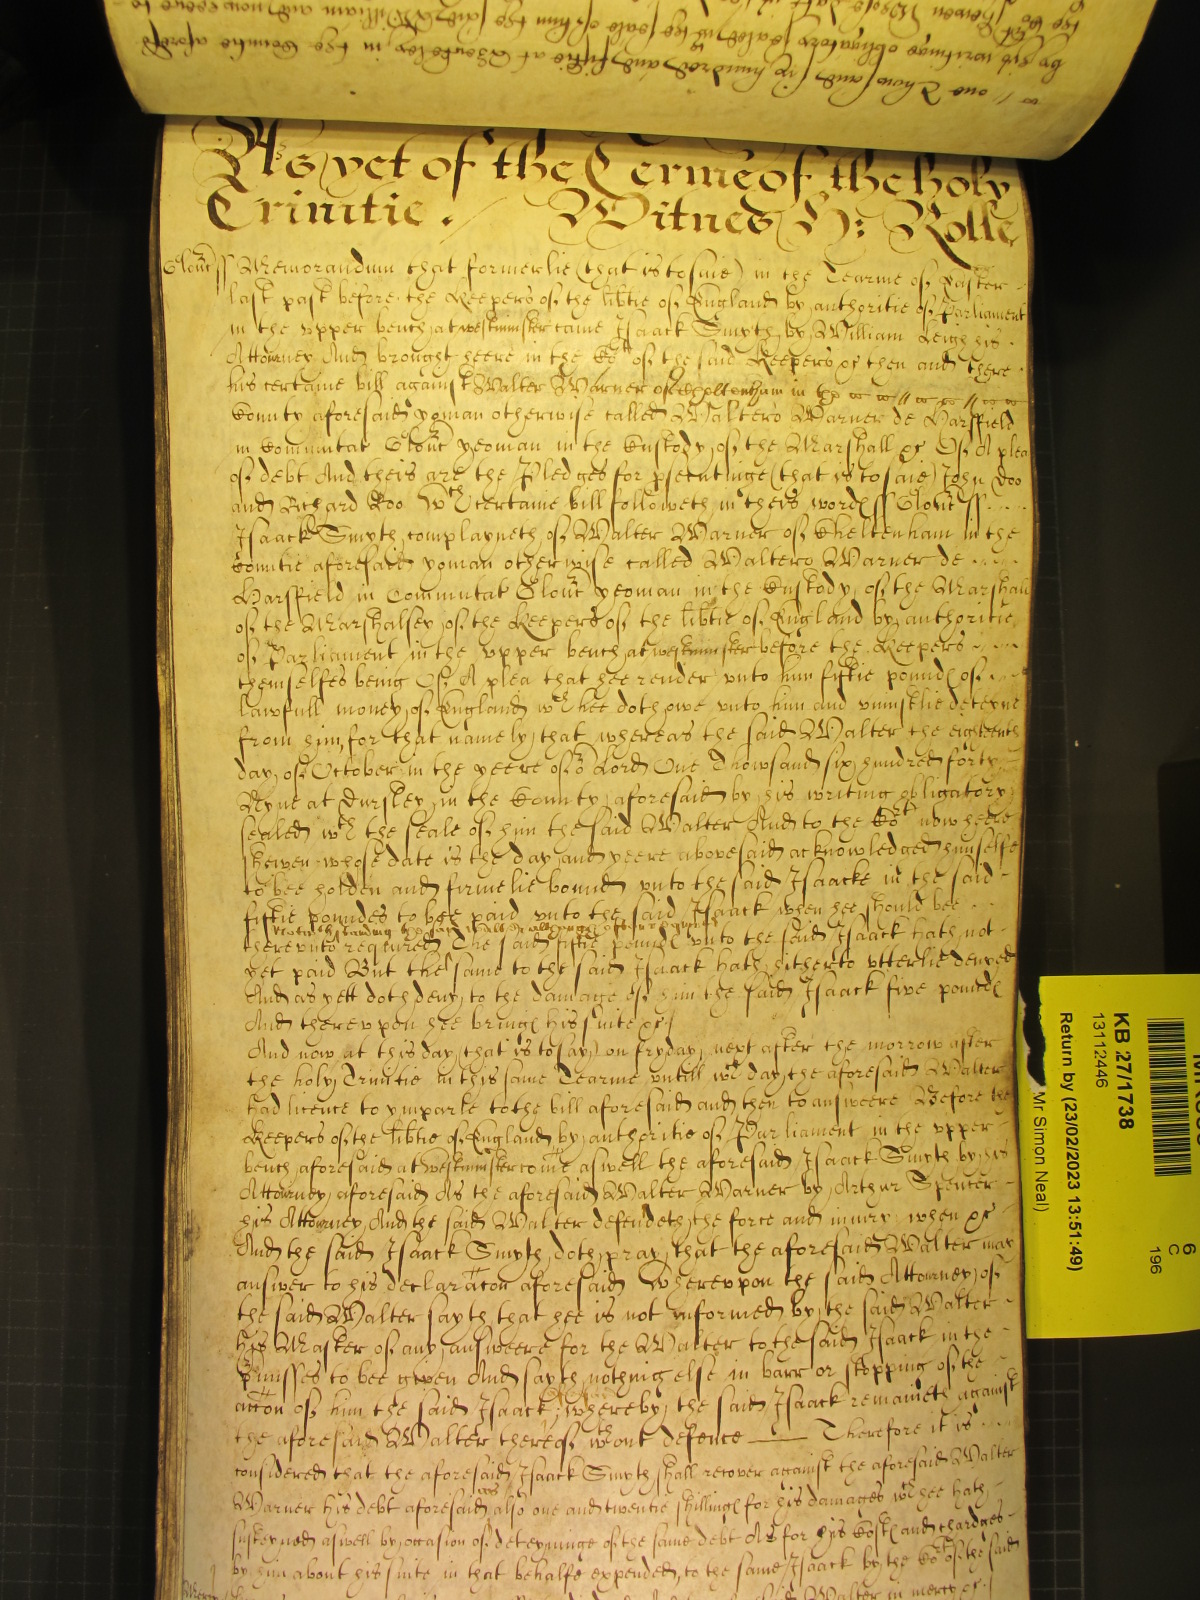 one Thowsand six hundred and fiftie at
As yet of the Terme of the holy
Trinitie. Witnes H: Rolle
Glouc ss Memorandum that formerlie (that is to saie) in the Tearme of Easter
last past before the Keepers of the libtie of England by authoritie of Parliament
in the vpper bench at westminster came Isaack Smyth by William Leigh his
Attorney And brought heere in the Cort of the said Keepers &c then and there
his certaine bill against Walter Warner of Cheltenham in
County aforesaid yoman otherwise called Waltero Warner de Harsfield
in Commitat Glouc yeoman in the Custody of the Marshall &c Of A plea
of debt And theis are the Pledges for psecutinge (that is to saie) John Doo
and Richard Roo Wch certaine bill followeth in theis words ss Glouc ss
Isaack Smyth complayneth of Walter Warner of Cheltenham in the
Countie aforesaid yoman otherwise called Waltero Warner de
Harsfield in Commitat Glouc yeoman in the Custody of the Marshall
of the Marshalsey of the Keepers of the libtie of England by authoritie
of Parliament in the vpper bench at westminster before the Keepers
themselfes being Of A plea that hee render vnto him fiftie pounds of
lawfull money of England wch hee doth owe vnto him and vniustlie deteyne
from him, for that namely, that whereas the said Walter the eighteenth
day of October in the yeere of or Lord One Thowsand six hundred forty
Nyne at Dursley in the County aforesaid by his writing obligatory
sealed wth the seale of him the said Walter And to the Cort now heere
shewen whose date is the day and yeere abovesaid acknowledged himselfe
to bee holden and firmelie bound vnto the said Isaacke in the said
fiftie poundes to bee paid vnto the said Isaack when hee should bee
notwithstanding the said Walter although often required
therevnto required The said fiftie pounds vnto the said Isaack hath not
yet paid But the same to the said Isaack hath hitherto vtterlie denyed
And as yett doth deny, to the damage of him the said Isaack five pounds
And therevpon hee brings his suite &c
And now at this day (that is to say) on fryday next after the morrow after
the holy Trinitie in this same Tearme vntill wch day the aforesaid Walter
had licence to ymparle to the bill aforesaid and then to answeere Before the
Keepers of the libtie of England by authoritie of Parliament in the vpper
bench aforesaid at westminster come aswell the aforesaid Isaack Smyth by his
Attorney aforesaid As the aforesaid Walter Warner by Arthur Spencer
his Attorney And the said Walter defendeth the force and iniury when &c
And the said Isaack Smyth doth pray that the aforesaid Walter may
answer to his declaracon aforesaid Wherevpon the said Attorney of
the said Walter sayth that hee is not informed by the said Walter
his Master of any answeere for the Walter to the said Isaack in the
pmisses to bee given And sayth nothing else in barr or stopping of the
accon of him the said Isaack, whereby the said Isaack remaineth against
the aforesaid Walter thereof wthout defence Therefore it is
considered that the aforesaid Isaack Smyth shall recover against the aforesaid Walter
Warner his debt aforesaid as also one and twentie shillings for his damages wch hee hath
susteyned aswell by occasion of deteyninge of the same debt As for his Costs and chardges
by him about his suite in that behalfe expended, to the same Isaack by the Cort of the said
Walter in mercy &c
KB 27/1738
13112446
Return by (23/02/2023 13:51:49)
Mr Simon Neal)
6
C
196